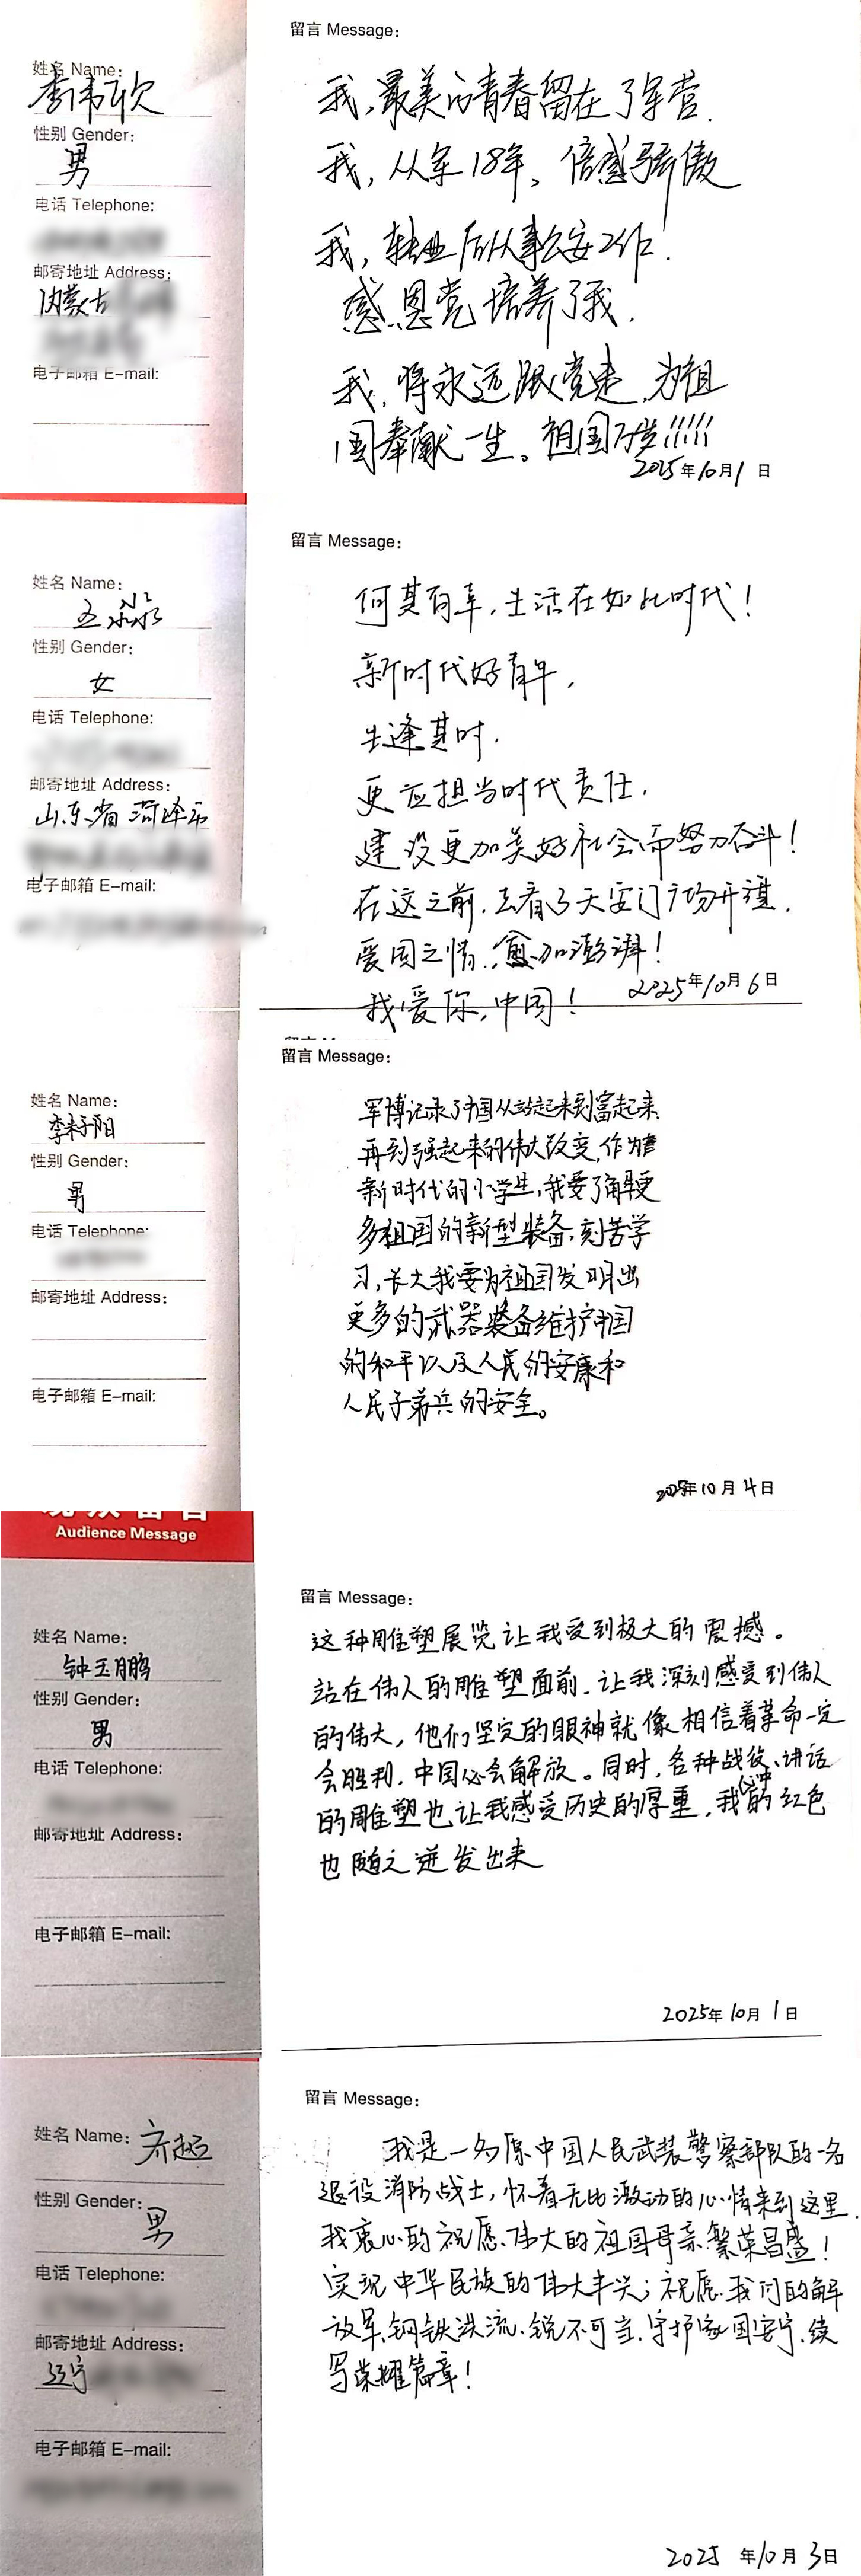 留言 Message:
姓名 Name:
李伟欣
性别 Gender:
男
电话 Telephone:
邮寄地址 Address:
内蒙古
电子邮箱 E-mail:
我,最美的青春留在了军营.
我,从军18年、倍感骄傲
我,转业后从事公安工作!
感恩党培养了我.
我,将永远跟党走,为祖
国奉献一生。祖国万岁!!!!!
2025年10月1日
留言 Message:
姓名 Name:
性别 Gender:
女
电话 Telephone:
邮寄地址 Address:
山东省菏泽市
电子邮箱 E-mail:
何其有幸,生活在如此时代!
新时代好青年,
生逢其时,
更应担当时代责任,
建设更加美好社会而努力奋斗!
在这之前,去看了天安门广场升旗,
爱国之情,愈加澎湃!
我爱你,中国!
2025年10月6日
留言 Message:
姓名 Name:
李籽阳
性别 Gender:
男
电话 Telephone:
邮寄地址 Address:
电子邮箱 E-mail:
军博记录了中国从站起来到富起来
再到强起来的伟大改变,作为
新时代的小学生,我要了解更
多祖国的新型装备,刻苦学
习,长大我要为祖国发明出
更多的武器装备维护中国
的和平以及人民的安康和
人民子弟兵的安全。
2025年10月4日
Audience Message
留言 Message:
姓名 Name:
钟玉鹏
性别 Gender:
男
电话 Telephone:
邮寄地址 Address:
电子邮箱 E-mail:
这种雕塑展览让我受到极大的震撼。
站在伟人的雕塑面前,让我深刻感受到伟人
的伟大,他们坚定的眼神就像相信着革命一定
会胜利,中国必会解放。同时,各种战役、讲话
的雕塑也让我感受历史的厚重,我心中的红色
也随之迸发出来
2025年10月1日
留言 Message:
姓名 Name:
齐超
性别 Gender:
男
电话 Telephone:
邮寄地址 Address:
辽宁
电子邮箱 E-mail:
我是一名原中国人民武装警察部队的一名
退役消防战士,怀着无比激动的心情来到这里.
我衷心的祝愿伟大的祖国母亲繁荣昌盛!
实现中华民族的伟大丰兴;祝愿我们的解
放军钢铁洪流、锐不可当,守护家国安宁,续
写荣耀篇章!
2025年10月3日